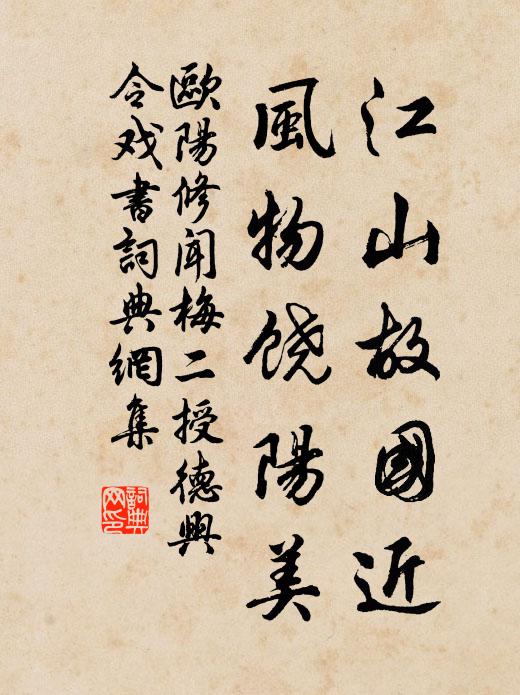 江山故國近
風物饶陽美
歐陽修聞梅二授德興
令戏書詞典網集
詞典网印